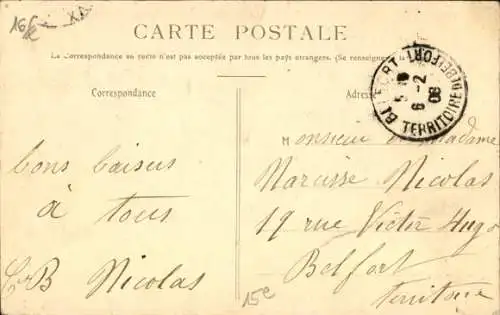 16k
CARTE POSTALE
La Correspondance au recto n'est pas acceptée par tous les pays étrangers. (Se renseigner
Correspondance
Adresse
BELFORT
6-2
08
TERRITOIRE DE BELFORT
Monsieur Madame
Narcisse Nicolas
19 rue Victor Hugo
Belfort
Territoire
bons baisers
à tous
B Nicolas
15e